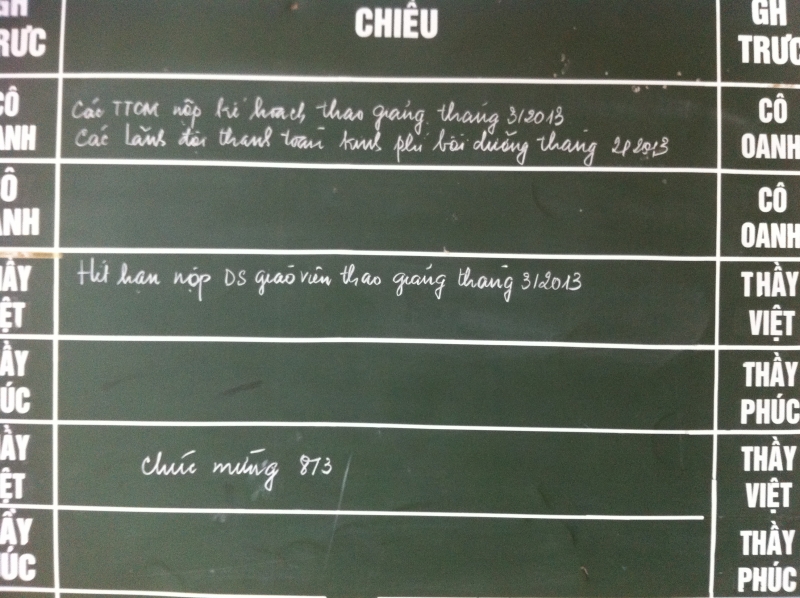 GH CHIỀU GH
TRƯC TRƯC
CÔ Các TTCM nộp kế hoạch thao giảng tháng 3/2013 CÔ
OANH Các lãnh đội thanh toán kinh phí bồi dưỡng tháng 2/2013 OANH
CÔ CÔ
OANH OANH
THẦY Hết hạn nộp DS giáo viên thao giảng tháng 3/2013 THẦY
VIỆT VIỆT
THẦY THẦY
PHÚC PHÚC
THẦY Chúc mừng 8/3 THẦY
VIỆT VIỆT
THẦY THẦY
PHÚC PHÚC